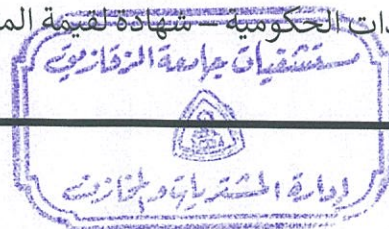 دات الحكومية – شهادة لقيمة الم
مستشفيات جامعة الزقازيق
إدارة المشتريات والمخازن